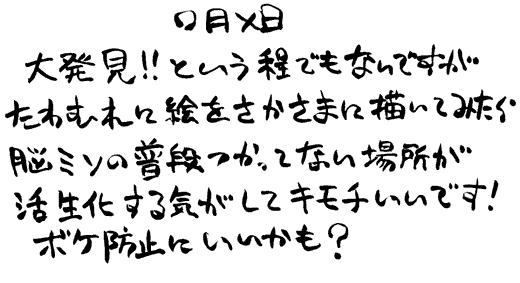 〇月×日
大発見!!という程でもないですが
たわむれに絵をさかさまに描いてみたら
脳ミソの普段つかってない場所が
活生化する気がしてキモチいいです!
ボケ防止にいいかも?